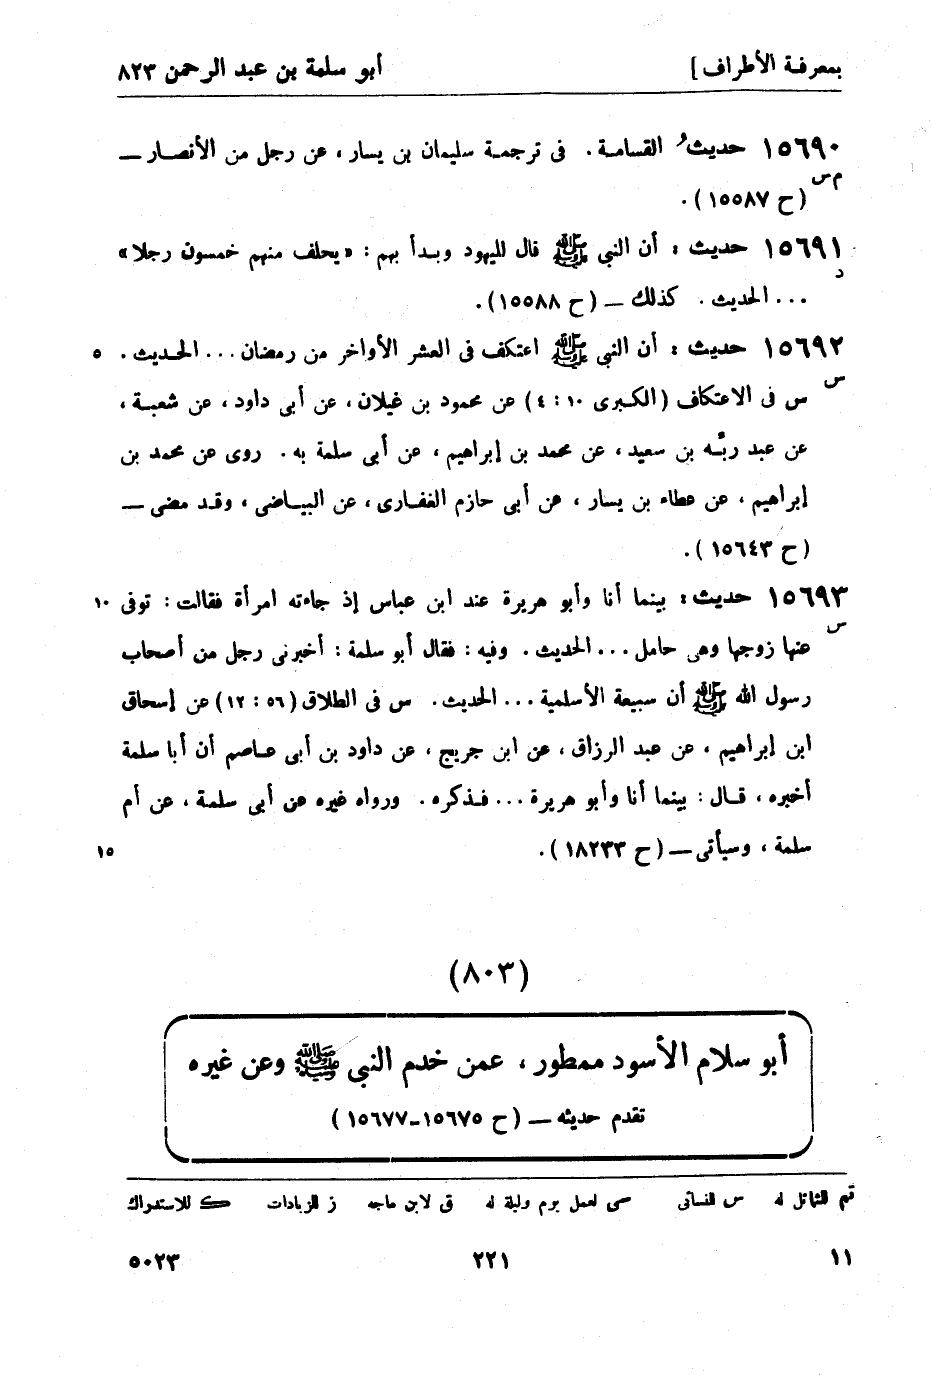 بمعرفة الأطراف] أبو سلمة بن عبد الرحمن ٨٢٣
١٥٦٩٠ حديثُ القسامة. فى ترجمة سليمان بن يسار، عن رجل من الأنصار —
م س
(ح ١٥٥٨٧).
١٥٦٩١ حديث: أن النبي ﷺ قال لليهود وبدأ بهم: «يحلف منهم خمسون رجلا»
د
... الحديث. كذلك — (ح ١٥٥٨٨).
١٥٦٩٢ حديث: أن النبي ﷺ اعتكف فى العشر الأواخر من رمضان... الحديث. ٥
س
س فى الاعتكاف (الكبرى ١٠: ٤) عن محمود بن غيلان، عن أبى داود، عن شعبة،
عن عبد ربّه بن سعيد، عن محمد بن إبراهيم، عن أبى سلمة به. روى عن محمد بن
إبراهيم، عن عطاء بن يسار، عن أبى حازم الغفارى، عن البياضى، وقد مضى —
(ح ١٥٦٤٣).
١٥٦٩٣ حديث: بينما أنا وأبو هريرة عند ابن عباس إذ جاءته امرأة فقالت: توفى ١٠
س
عنها زوجها وهى حامل... الحديث. وفيه: فقال أبو سلمة: أخبرنى رجل من أصحاب
رسول الله ﷺ أن سبيعة الأسلمية... الحديث. س فى الطلاق (٥٦: ١٢) عن إسحاق
ابن إبراهيم، عن عبد الرزاق، عن ابن جريج، عن داود بن أبى عاصم أن أبا سلمة
أخبره، قال: بينما أنا وأبو هريرة... فذكره. ورواه غيره عن أبى سلمة، عن أم
سلمة، وسيأتى — (ح ١٨٢٣٣). ١٥
(٨٠٣)
أبو سلام الأسود ممطور، عمن خدم النبي ﷺ وعن غيره
تقدم حديثه — (ح ١٥٦٧٥-١٥٦٧٧)
تم للشمائل له س للنسائى سى لعمل يوم وليلة له ق لابن ماجه ز للزيادات ك للاستدراك
١١ ٢٢١ ٥٠٢٣